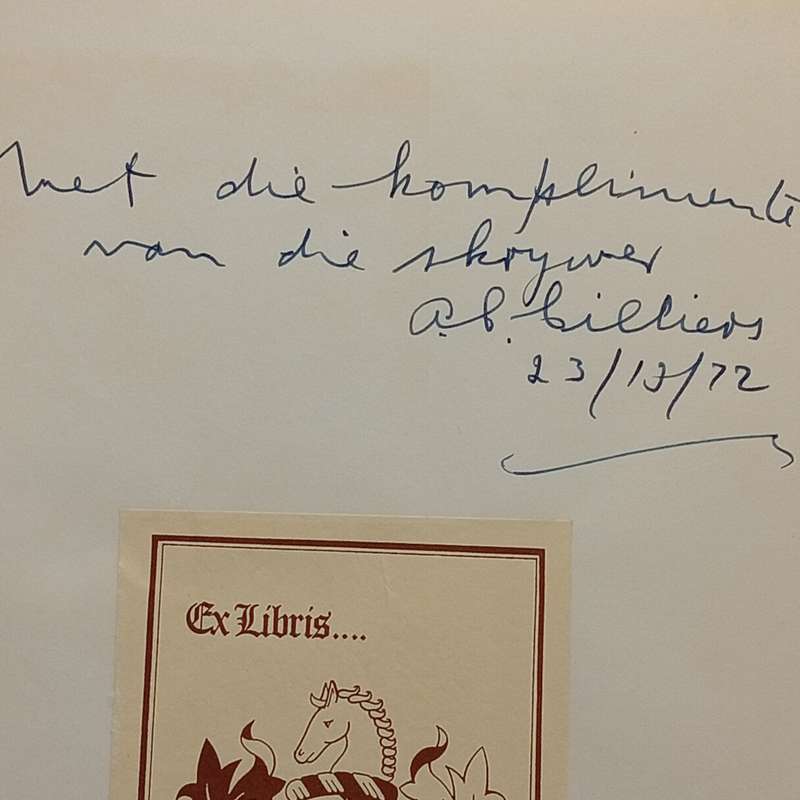 Met die komplimente
van die skrywer
A.C. Cilliers
23/12/72
Ex Libris....